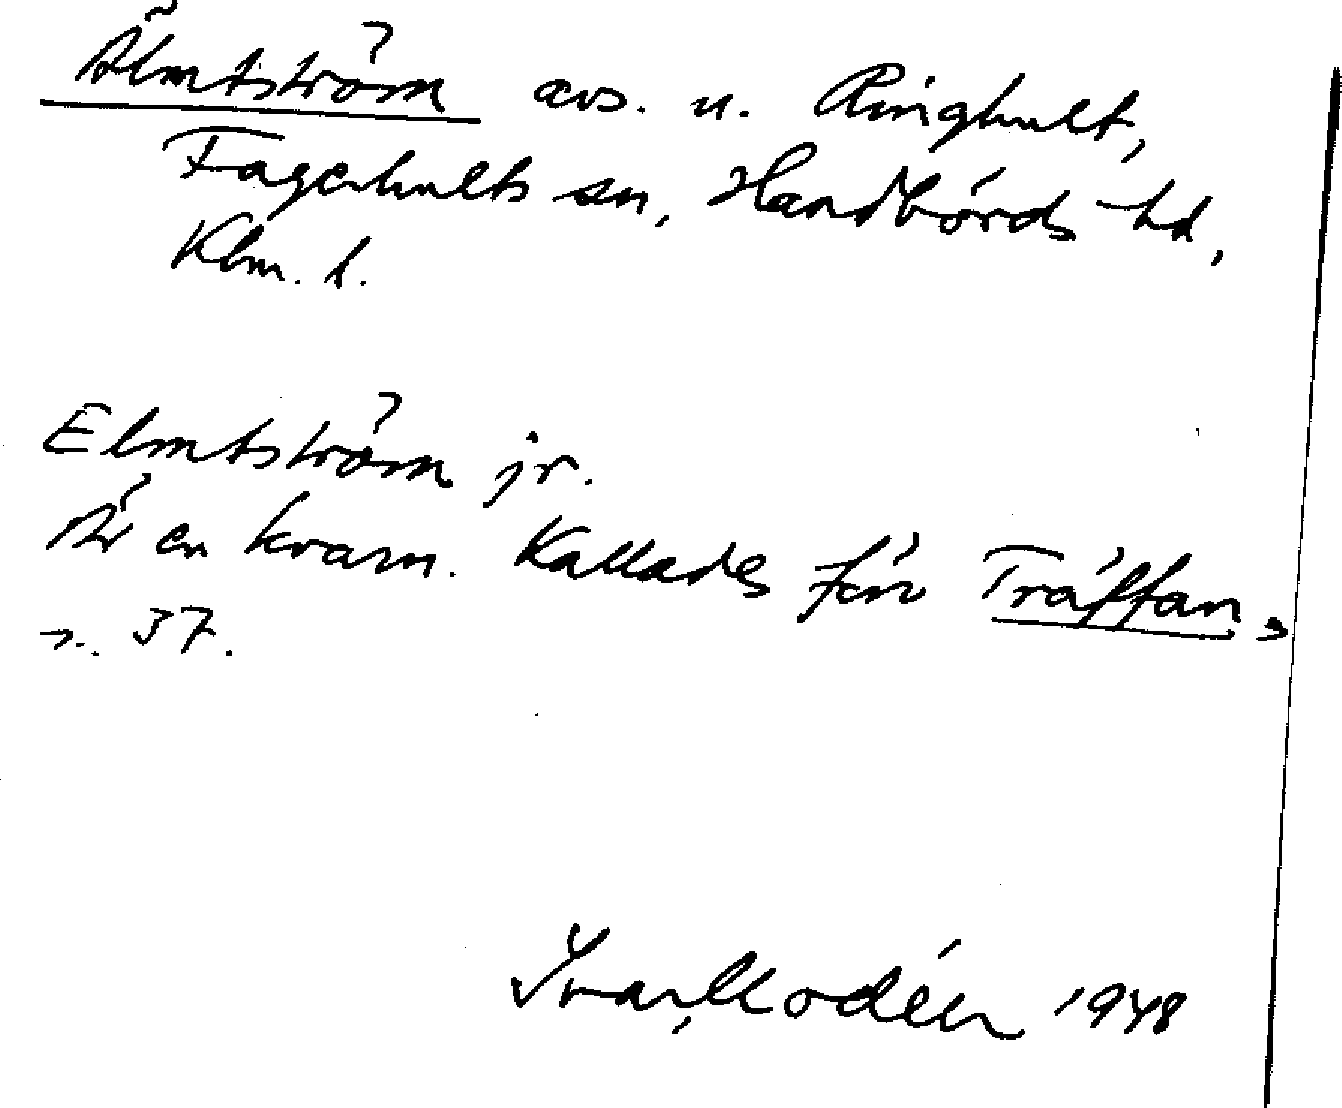 Älmtström avs. u. Ringhult,
Fagerhults sn, Handbörds hd,
Klm. l.
Elmtström jr.
Är en kvarn. Kallades förr Träffan,
s. 37.
Ivar Modéer 1948